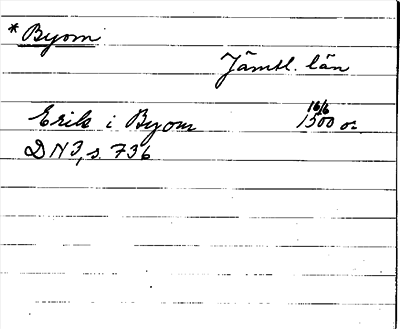 * Byom
Jämtl. län
Erik i Byom 16/6 1500 or.
DN3, s. 736